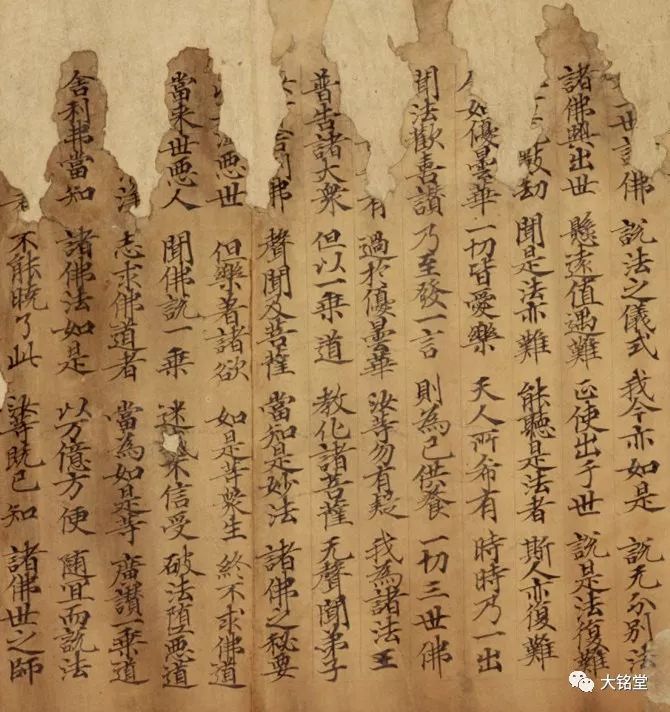 世諸佛 說法之儀式 我今亦如是 說无分別法
諸佛興出世 懸遠值遇難 正使出于世 說是法復難
數劫 聞是法亦難 能聽是法者 斯人亦復難
如優曇華 一切皆愛樂 天人所希有 時時乃一出
聞法歡喜讚 乃至發一言 則為已供養 一切三世佛
有 過於優曇華 汝等勿有疑 我為諸法王
普告諸大衆 但以一乗道 教化諸菩薩 无聲聞弟子
舍利弗 聲聞及菩薩 當知是妙法 諸佛之秘要
悪世 但樂著諸欲 如是等衆生 終不求佛道
當来世悪人 聞佛說一乗 迷不信受 破法墮悪道
淨 志求佛道者 當為如是等 廣讚一乗道
舍利弗當知 諸佛法如是 以万億方便 隨宜而說法
不能曉了此 汝等既已知 諸佛世之師
大铭堂